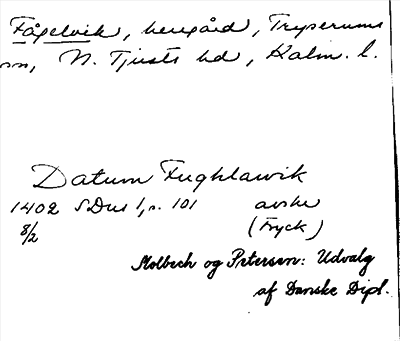 Fågelvik, herrgård, Tryserums
sn, N. Tjusts hd, Kalm. l.
Datum Fughlawik
1402 SDns 1, s. 101 avskr
8/2 (Tryck)
Molbech og Petersen: Udvalg
af Danske Dipl.